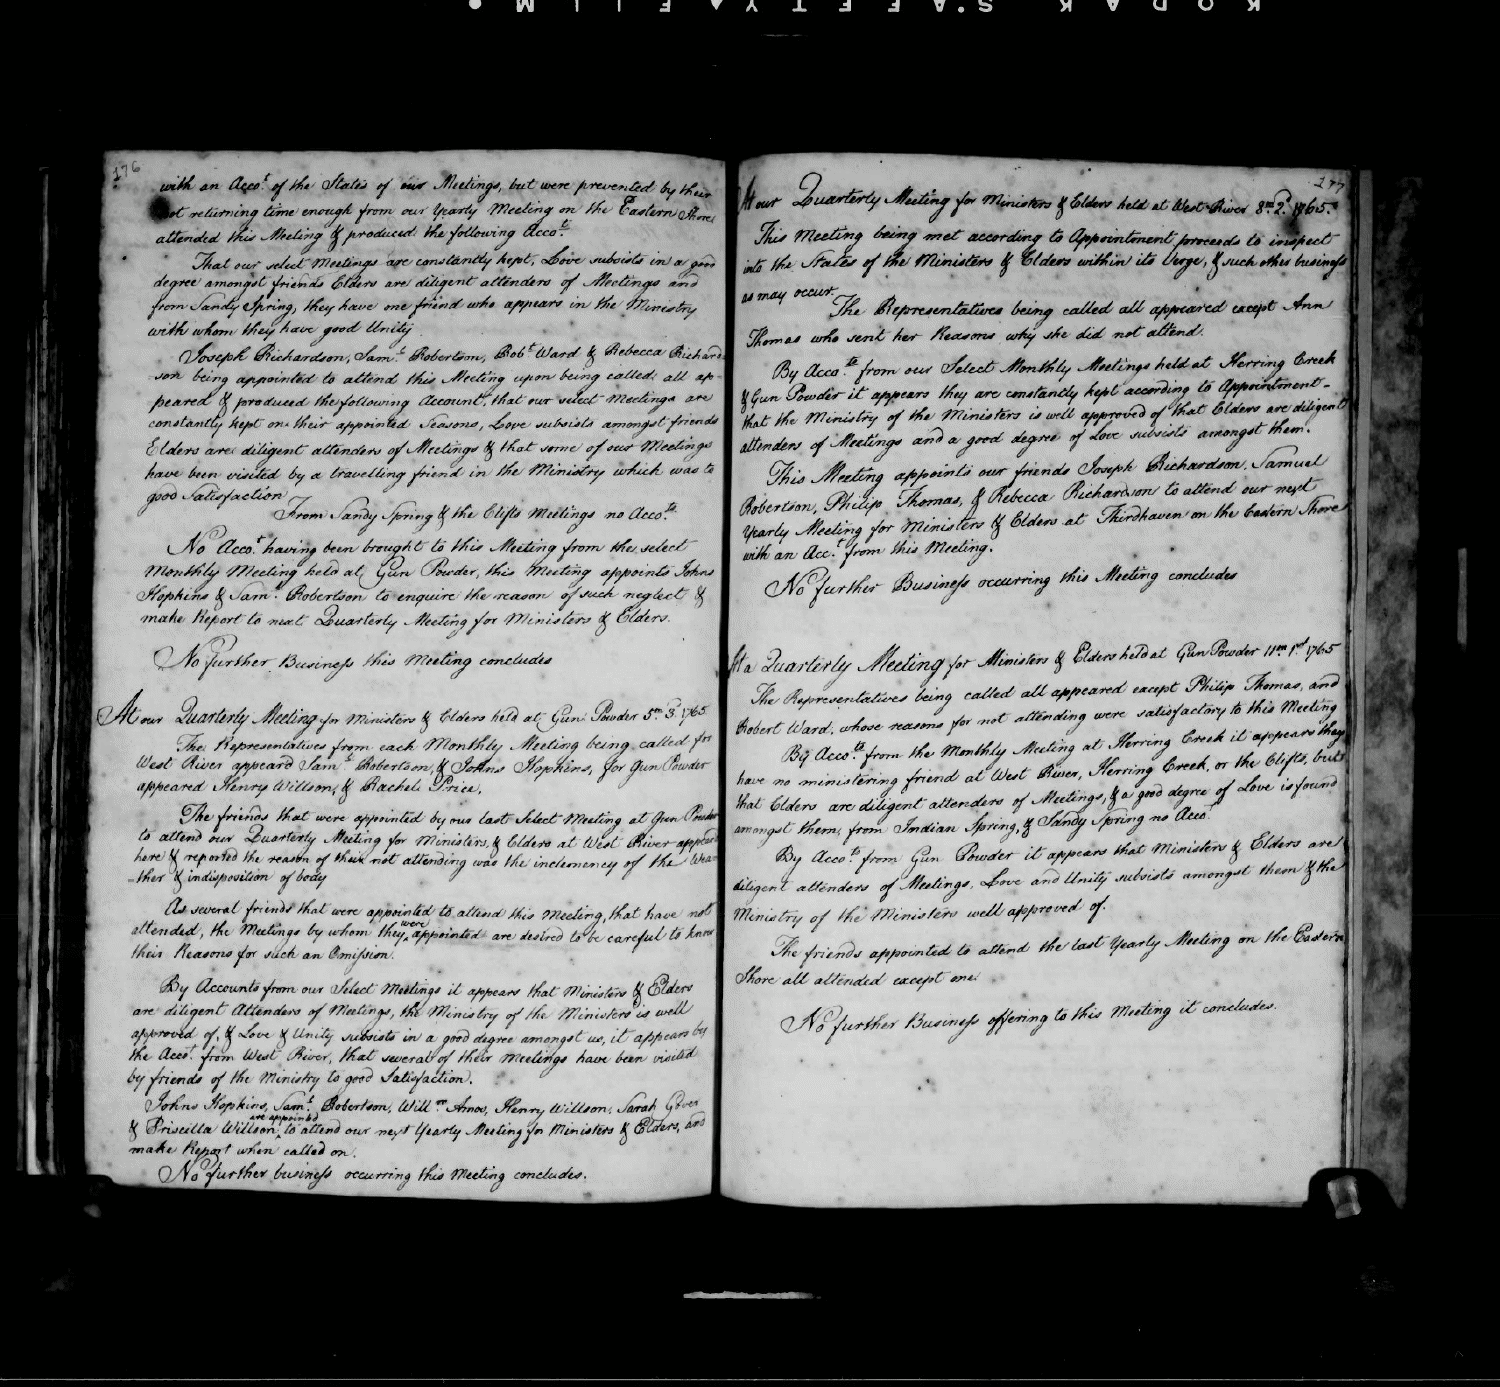 176
with an Acco.t of the States of our Meetings, but were prevented by their
not returning time enough from our Yearly Meeting on the Eastern Shore
attended this Meeting & produced the following Acco.ts
That our select Meetings are constantly kept, Love subsists in a good
degree amongst friends Elders are diligent attenders of Meetings and
from Sandy Spring, they have one friend who appears in the Ministry
with whom they have good Unity
Joseph Richardson, Sam.l Robertson, Rob.t Ward & Rebecca Richard
-son being appointed to attend this Meeting upon being called all ap-
peared & produced the following Account, that our select Meetings are
constantly kept on their appointed Seasons, Love subsists amongst friends
Elders are diligent attenders of Meetings & that some of our Meetings
have been visited by a travelling friend in the Ministry which was to
good Satisfaction
From Sandy Spring & the Clifts Meetings no Acco.ts
No Acco.t having been brought to this Meeting from the select
Monthly Meeting held at Gun Powder, this Meeting appoints Johns
Hopkins & Sam.l Robertson to enquire the reason of such neglect &
make Report to next Quarterly Meeting for Ministers & Elders.
No further Business this Meeting concludes
At our Quarterly Meeting for Ministers & Elders held at Gun Powder 5.m 3.d 1765
The Representatives from each Monthly Meeting being called for
West River appeard Sam.l Robertson, & Johns Hopkins, for Gun Powder
appeared Henry Willson, & Rachel Price.
The friends that were appointed by our last Select Meeting at Gun Powder
to attend our Quarterly Meeting for Ministers, & Elders at West River appeard
here & reported the reason of their not attending was the inclemency of the Wea-
-ther & indisposition of body
As several friends that were appointed to attend this Meeting, that have not
attended, the Meetings by whom they were appointed are desired to be careful to know
their Reasons for such an Omission.
By Accounts from our Select Meetings it appears that Ministers & Elders
are diligent Attenders of Meetings, the Ministry of the Ministers is well
approved of, & Love & Unity subsists in a good degree amongst us, it appears by
the Acco.t from West River, that several of their Meetings have been visited
by friends of the Ministry to good Satisfaction.
Johns Hopkins, Sam.l Robertson, Will.m Amos, Henry Willson, Sarah Gover
& Priscilla Willson, are appointed to attend our next Yearly Meeting for Ministers & Elders, and
make Report when called on.
No further business occurring this Meeting concludes.
177
At our Quarterly Meeting for Ministers & Elders held at West River 8.m 2.d 1765.
This Meeting being met according to Appointment proceeds to inspect
into the States of the Ministers & Elders within its Verge, & such other business
as may occur
The Representatives being called all appeared except Ann
Thomas who sent her Reasons why she did not attend.
By Acco.ts from our Select Monthly Meetings held at Herring Creek
& Gun Powder it appears they are constantly kept according to Appointment-
that the Ministry of the Ministers is well approved of that Elders are diligent
attenders of Meetings and a good degree of Love subsists amongst them.
This Meeting appoints our friends Joseph Richardson, Samuel
Robertson, Philip Thomas, & Rebecca Richardson to attend our next
Yearly Meeting for Ministers & Elders at Thirdhaven on the Eastern Shore
with an Acc.t from this Meeting.
No further Business occurring this Meeting concludes
At a Quarterly Meeting for Ministers & Elders held at Gun Powder 11.m 1.st 1765
The Representatives being called all appeared except Philip Thomas, and
Robert Ward, whose reasons for not attending were satisfactory to this Meeting
By Acco.ts from the Monthly Meeting at Herring Creek it appears they
have no ministering friend at West River, Herring Creek, or the Clifts, but
that Elders are diligent attenders of Meetings, & a good degree of Love is found
amongst them, from Indian Spring, & Sandy Spring no Acco.t
By Acco.ts from Gun Powder it appears that Ministers & Elders are
diligent attenders of Meetings, Love and Unity subsists amongst them & the
Ministry of the Ministers well approved of.
The friends appointed to attend the last Yearly Meeting on the Eastern
Shore all attended except one
No further Business offering to this Meeting it concludes.
KODAK SAFETY FILM